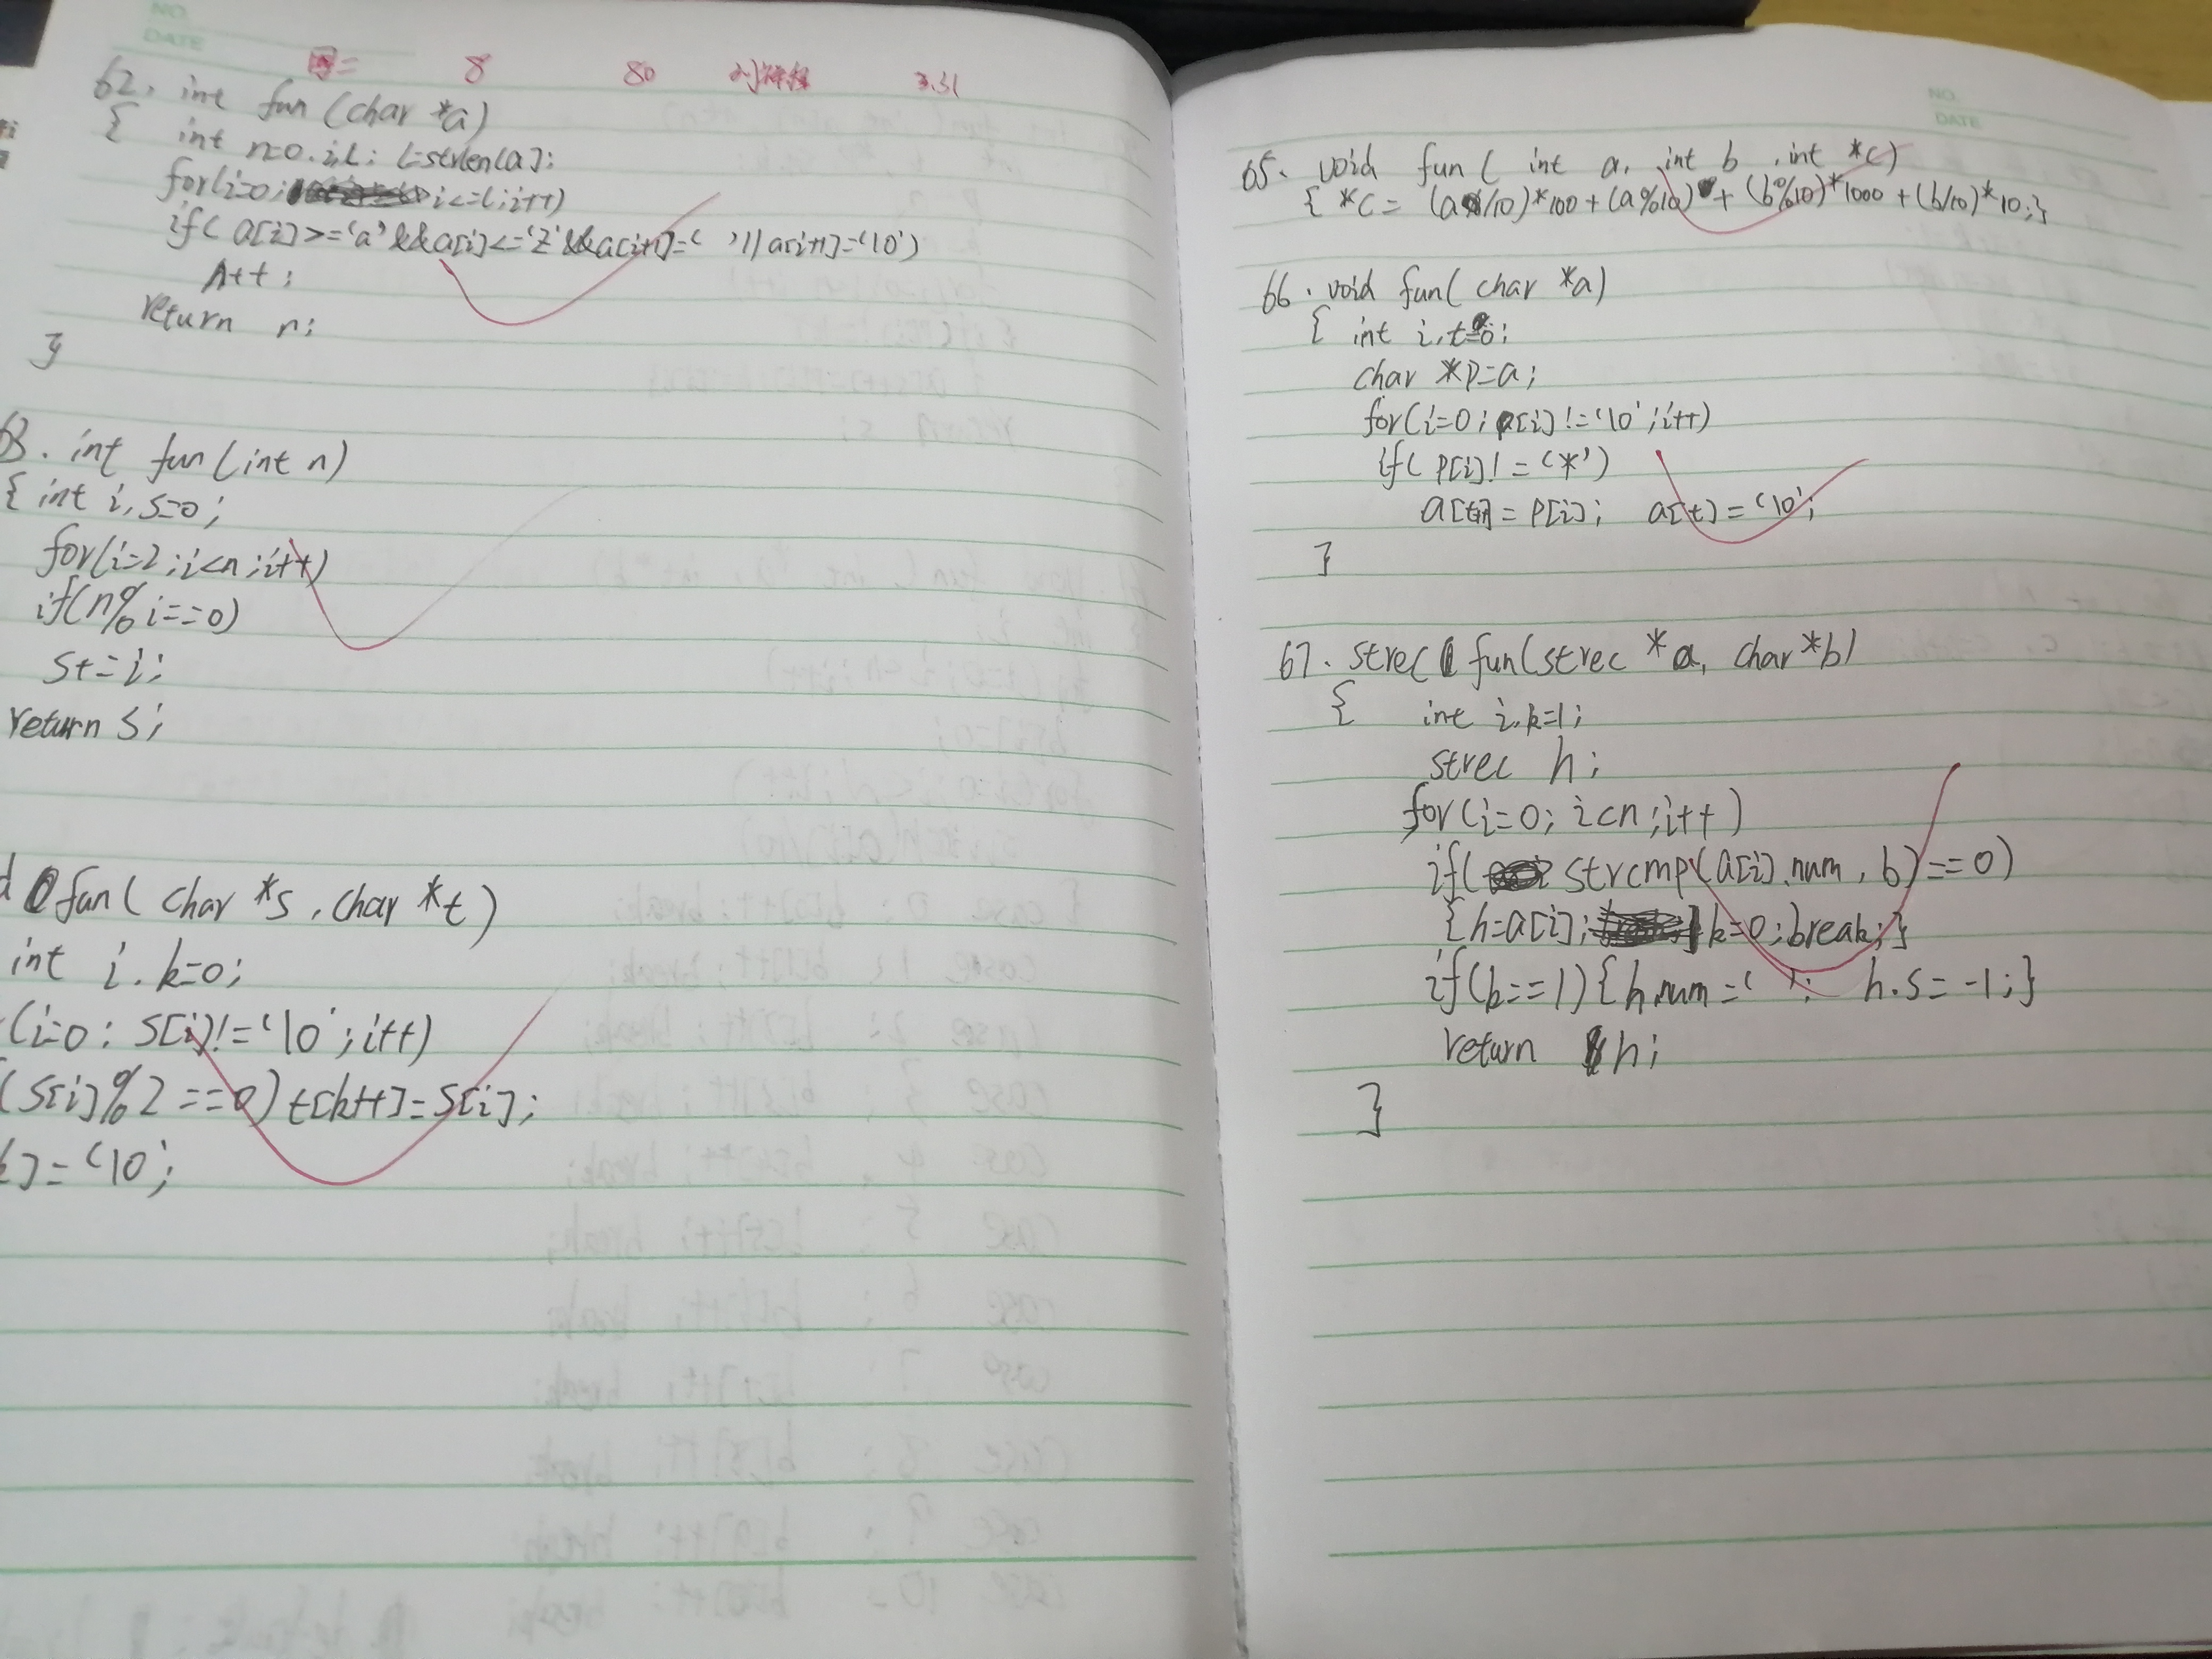 NO.
DATE
二 8 80 3.31
62. int fun (char *a)
{ int n=0.i,l; l=strlen(a];
for(i=0; i<=l;i++)
if( a[i]>='a'&&a[i]<='z'&&a[i+1]=' '|| a[i+1]='\0')
n++;
return n;
}
63. int fun (int n)
{ int i,s=0;
for(i=2;i<n;i++)
if(n%i==0)
s+=i;
return s;
d fun( char *s, char *t)
int i.k=0;
(i=0; s[i]!='\0';i++)
(s[i]%2==0) t[k++]=s[i];
k]='\0';
NO.
DATE
65. void fun( int a, int b ,int *c)
{ *c= (a/10)*100+(a%10)+(b%10)*1000+(b/10)*10;}
66. void fun( char *a)
{ int i,t=0;
char *p=a;
for(i=0; p[i]!='\0';i++)
if( p[i]!='*')
a[t++]=p[i]; a[t]='\0';
}
67. strec fun(strec *a, char*b)
{ int i.k=1;
strec h;
for(i=0; i<n;i++)
if( strcmp(a[i].num, b)==0)
{h=a[i]; k=0;break;}
if(k==1){h.num=' '; h.s=-1;}
return h;
}